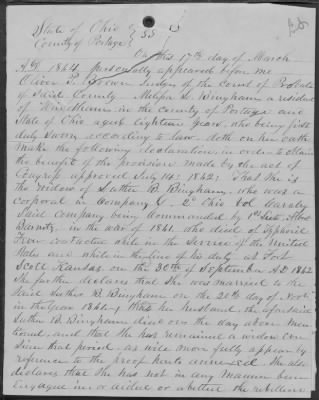 State of Ohio } S S
County of Portage }
On this 17th day of March
A.D. 1864, personally appeared before me
Oliver P. Brown Judge of the Court of Probate
of said County Melissa S. Bingham a resident
of Windham in the County of Portage and
State of Ohio aged Eighteen years, who being first
duly sworn according to law, doth on her oath
make the following declaration in order to obtain
the benefit of the provision made by the act of
Congress approved July 14th 1862: That she is
the Widow of Luther B. Bingham, who was a
Corporal in Company G - 2d Ohio Vol Cavalry
said Company being commanded by 1st Lieut. Albert
Barnitz, in the war of 1861. who died of Typhoid
Fever contracted while in the service of the United
States and while in the line of his duty at Fort
Scott Kansas, on the 30th of September A.D. 1862
She further declares that She was married to the
Said Luther B Bingham on the 20th day of
in the Year 1861, that her husband, the aforesaid
Luther B. Bingham died on the day above men
tioned, and that She has remained a widow ever
Since that period, as will more fully appear by
reference to the proof hereto annexed. She also
declares that She has not in any manner been
engaged in or aided or abetted the rebellion